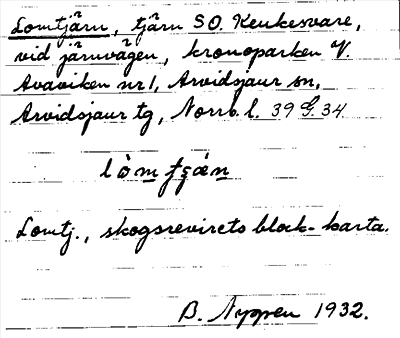 Lomtjärn, tjärn SO. Keukesvare,
vid järnvägen, kronoparken V.
Avaviken nr 1, Arvidsjaur sn,
Arvidsjaur tg, Norrb. l. 39 G. 34
Lomtj., skogsrevirets block-karta.
B. Nyppen 1932.